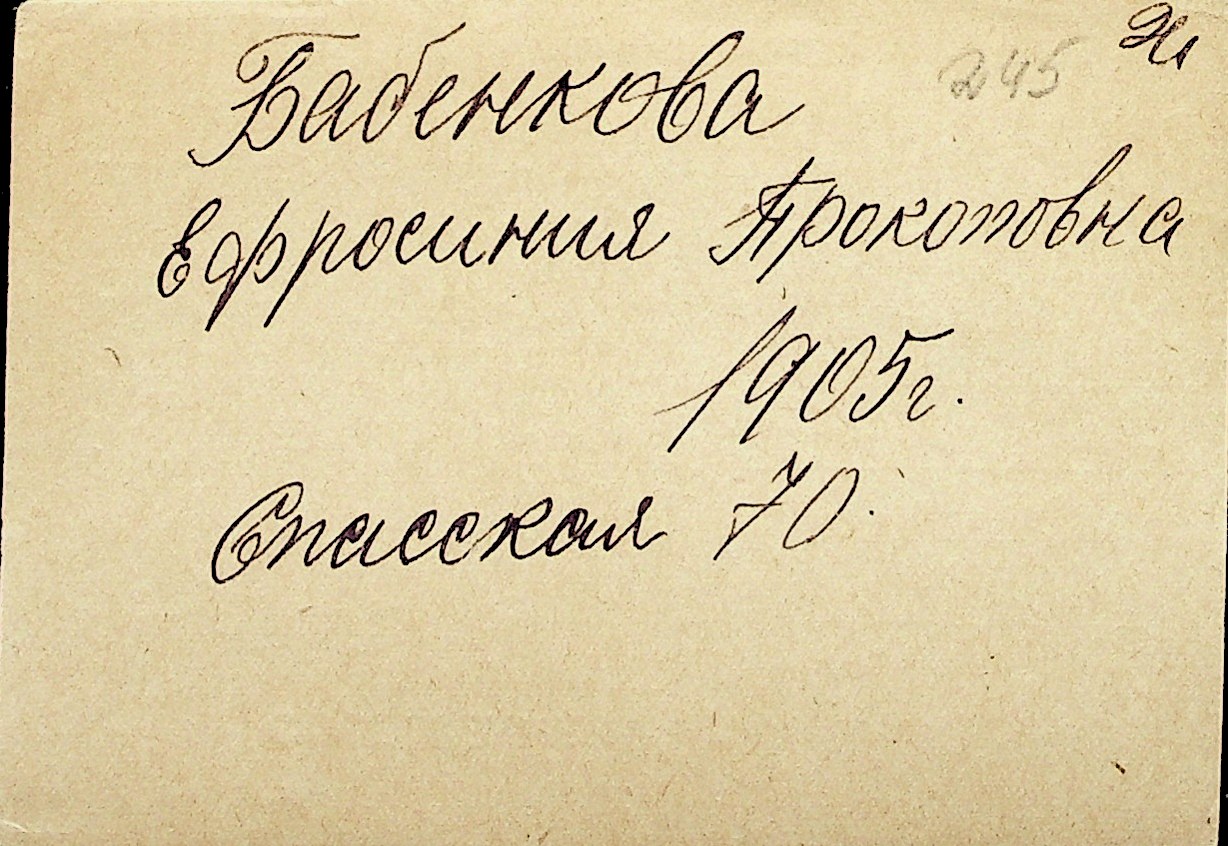 245
Бабенкова
Ефросиния Прокоповна
1905г.
Спасская 70.